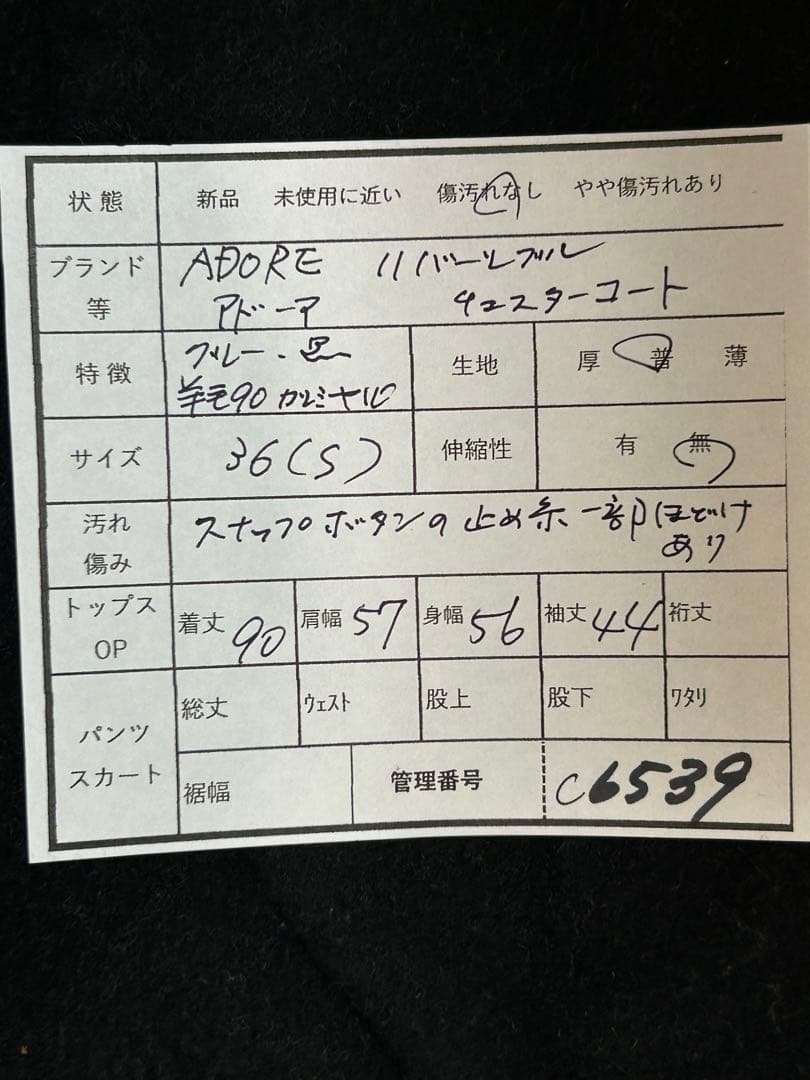 状態 新品 未使用に近い 傷汚れなし やや傷汚れあり
ブランド等 ADORE リバーシブル
アドーア チェスターコート
特徴 ブルー・黒 生地 厚 普 薄
羊毛90 カシミヤ10
サイズ 36(S) 伸縮性 有 無
汚れ傷み スナップボタンの止め糸一部ほどけ
あり
トップスOP 着丈 90 肩幅 57 身幅 56 袖丈 44 裄丈
パンツスカート 総丈 ウェスト 股上 股下 ワタリ
裾幅 管理番号 C6539